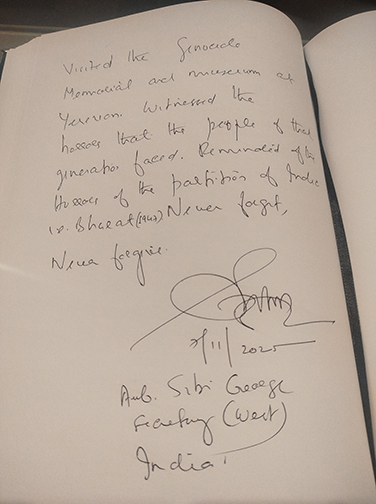 Visited the Genocide
Memorial and museum at
Yerevan. Witnessed the
horrors that the people of that
generation faced. Reminded of the
Horrors of the partition of India
i.e. Bharat (1947) Never forget,
Never forgive.
/11/2025
Amb. Sibi George
Secretary (West)
India